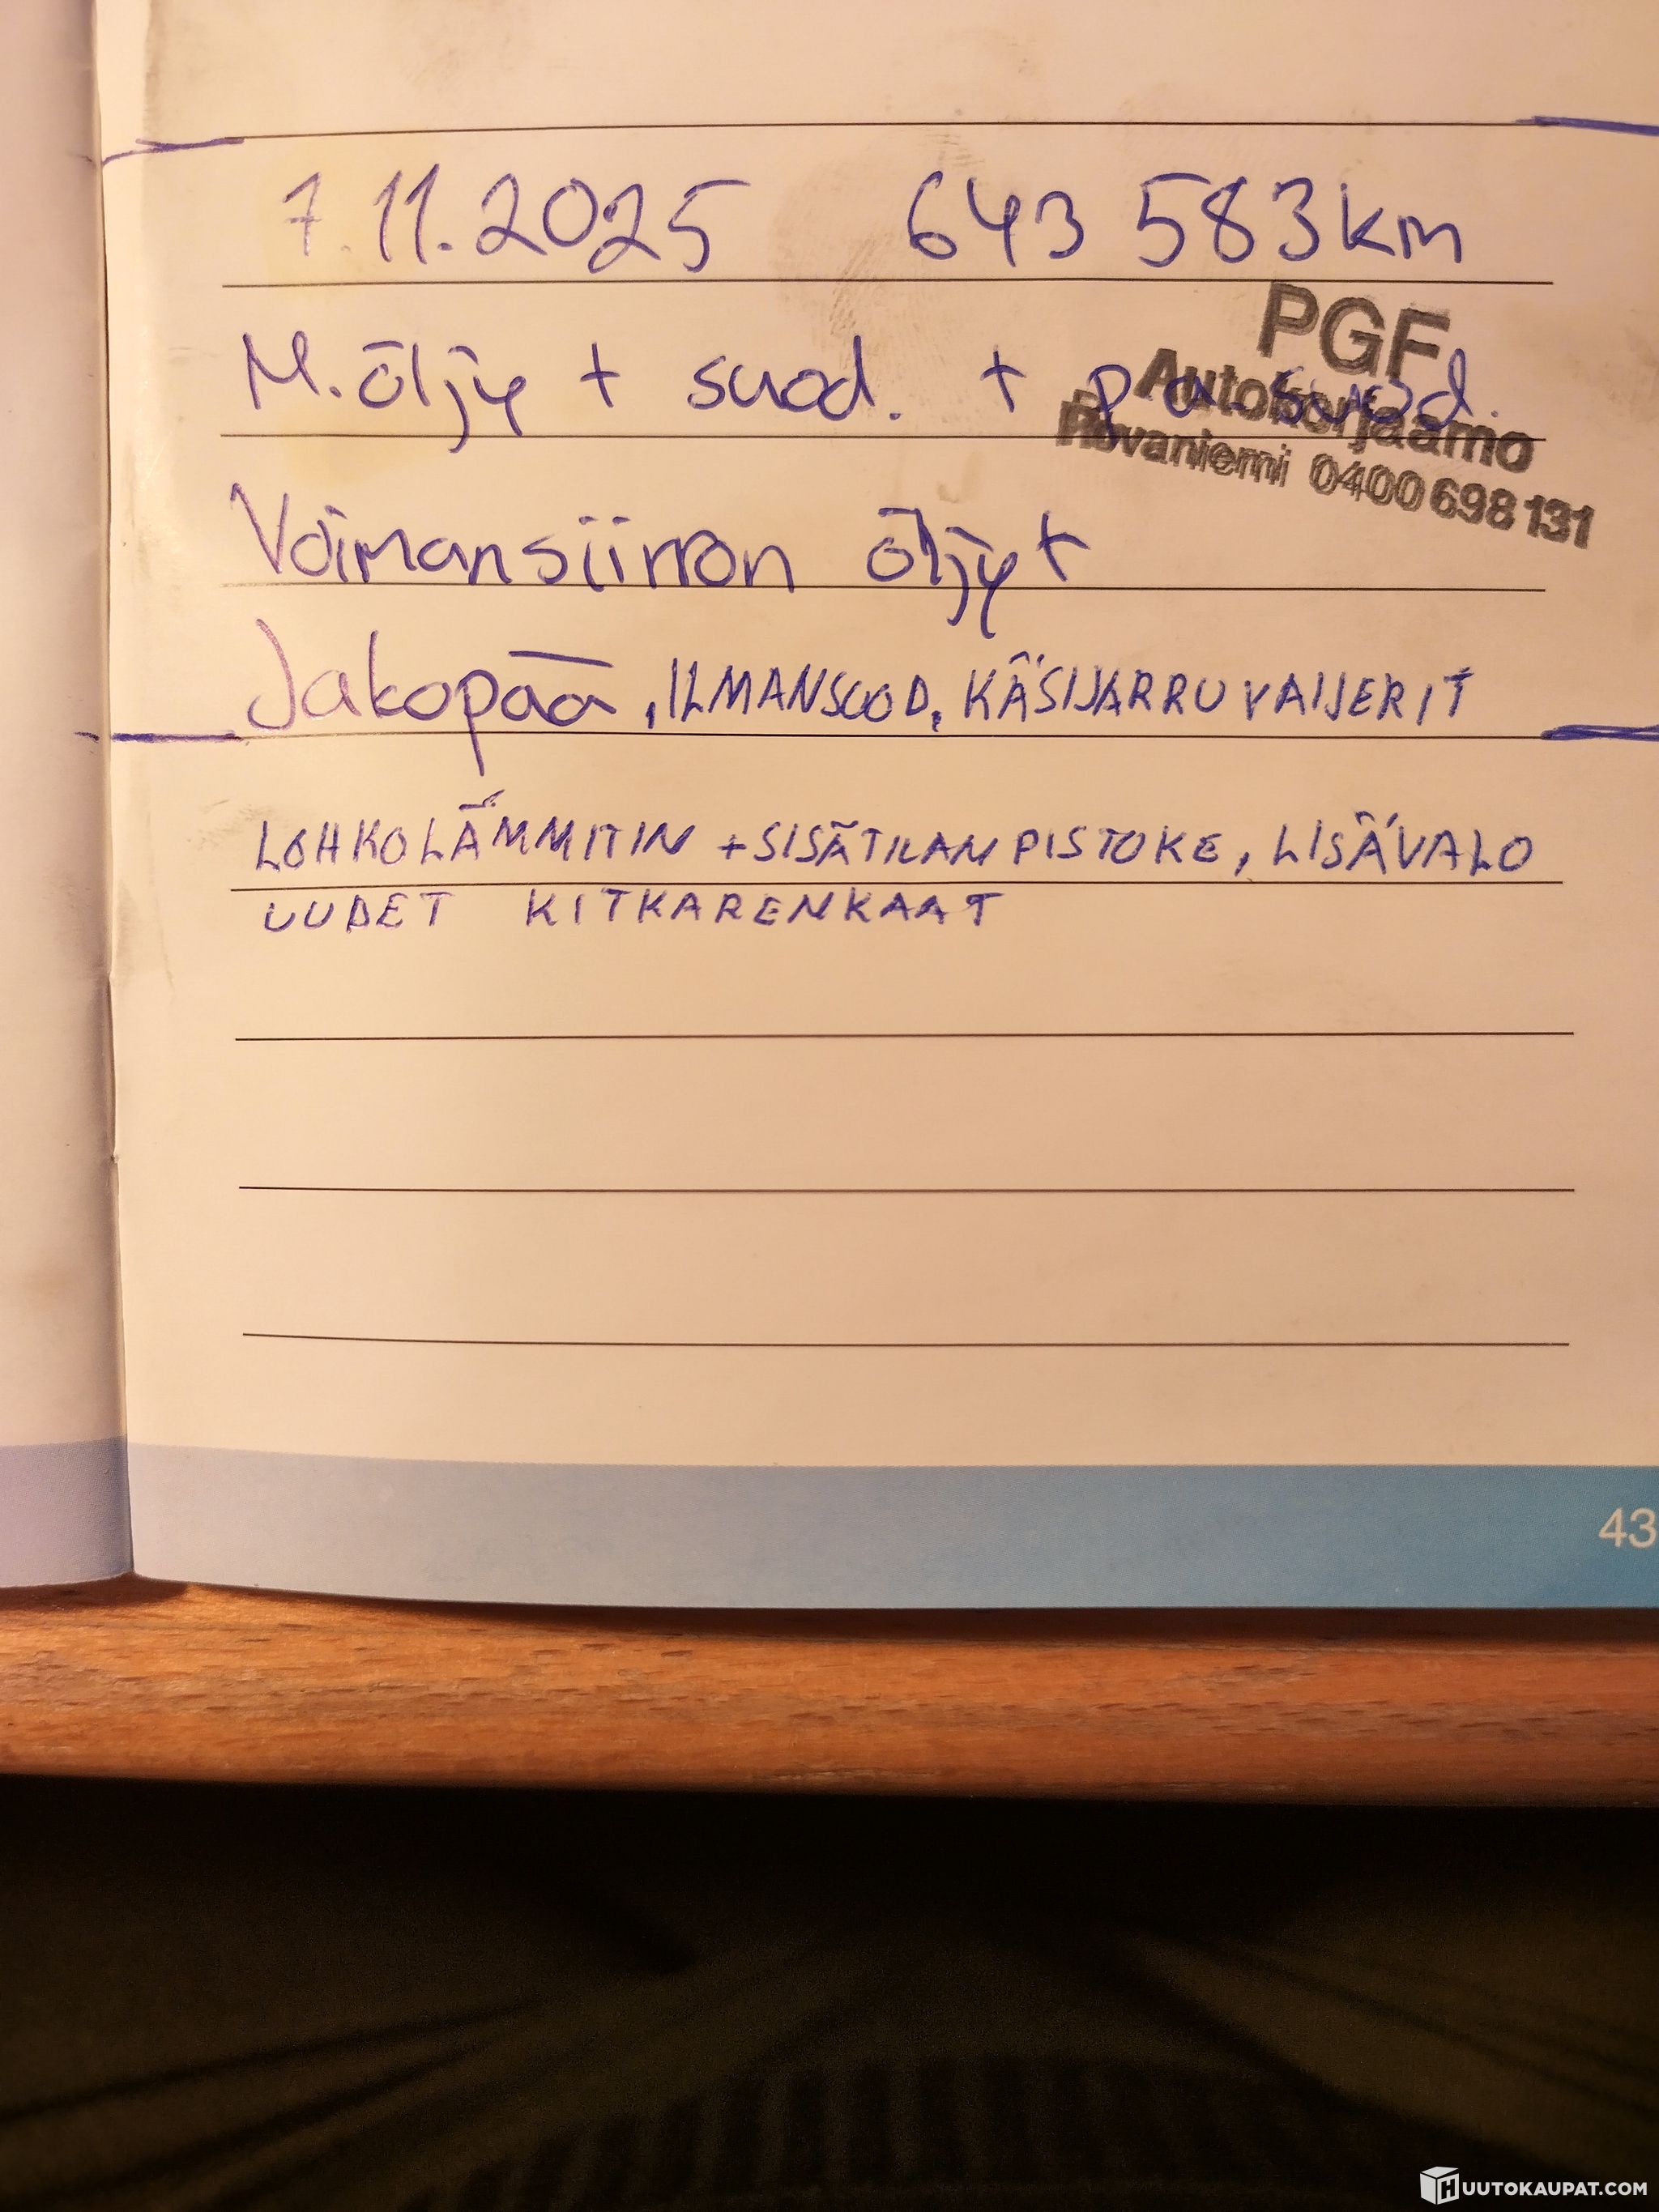 7.11.2025 643 583km
PGF
M.öljy + suod. + pa-suod.
Autokorjaamo
Rovaniemi 0400 698 131
Voimansiirron öljyt
Jakopää, ILMANSUOD, KÄSIJARRUVAIJERIT
LOHKOLÄMMITIN + SISÄTILANPISTOKE, LISÄVALO
UUDET KITKARENKAAT
43
HUUTOKAUPAT.COM